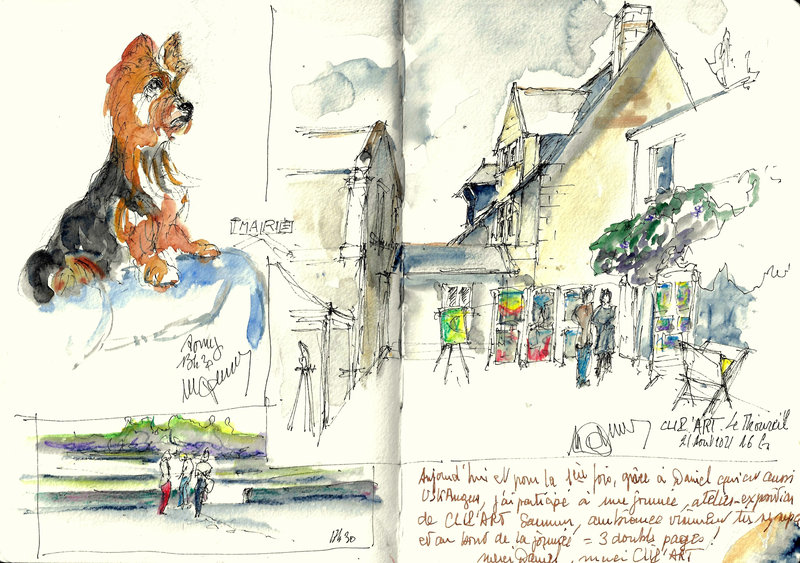 MAIRIE
13h30
CLIC'ART. Le Thoureil
21 Août 2021 16 h
17h30
Aujourd'hui et pour la 1ère fois, grâce à Daniel qui est aussi
j'ai participé à une journée, atelier-exposition
de CLIC'ART Saumur, ambiance vraiment très sympa
et au bout de la journée = 3 doubles pages !
merci Daniel, merci CLIC'ART